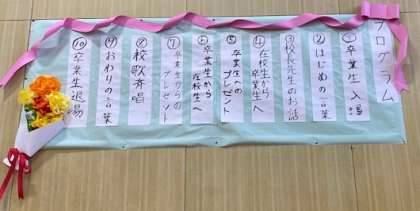 プログラム
① 卒業生 入場
② はじめの言葉
③ 校長先生のお話
④ 在校生から
卒業生へ
⑤ 卒業生への
プレゼント
⑥ 卒業生から
在校生へ
⑦ 卒業生からの
プレゼント
⑧ 校歌斉唱
⑨ おわりの言葉
⑩ 卒業生退場